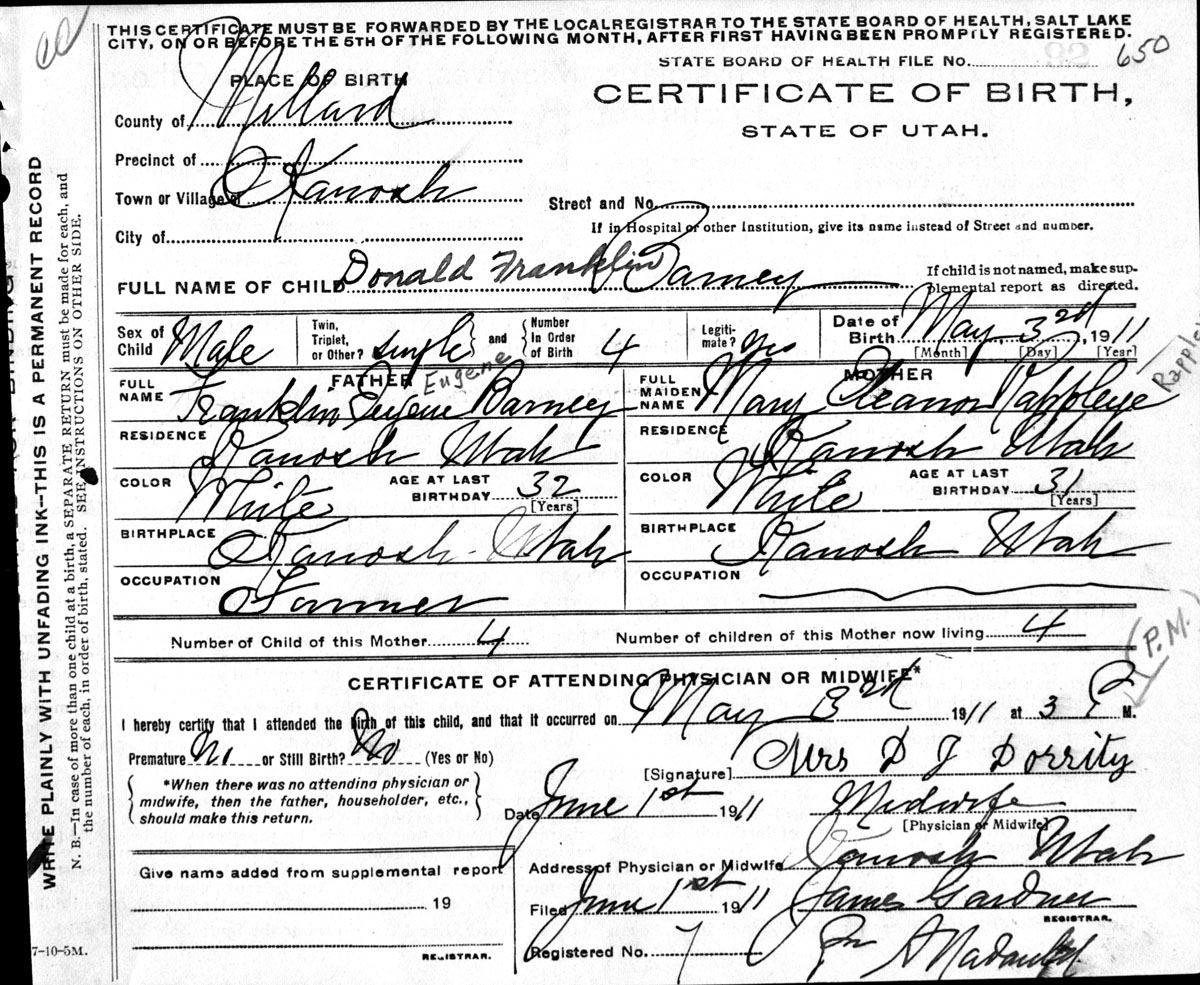 THIS CERTIFICATE MUST BE FORWARDED BY THE LOCAL REGISTRAR TO THE STATE BOARD OF HEALTH, SALT LAKE
CITY, ON OR BEFORE THE 5TH OF THE FOLLOWING MONTH, AFTER FIRST HAVING BEEN PROMPTLY REGISTERED.
STATE BOARD OF HEALTH FILE No. 650
PLACE OF BIRTH
CERTIFICATE OF BIRTH,
County of Millard
STATE OF UTAH.
Precinct of
Town or Village of Kanosh
Street and No.
City of
If in Hospital or other Institution, give its name instead of Street and number.
FULL NAME OF CHILD Donald Franklin Barney
If child is not named, make sup-
plemental report as directed.
Sex of Child Male
Twin, Triplet, or Other? single and
Number In Order of Birth 4
Legiti-mate? Yes
Date of Birth May 3rd, 1911
[Month] [Day] [Year]
FATHER
Eugene
FULL NAME Franklin Eugene Barney
RESIDENCE Kanosh Utah
COLOR White AGE AT LAST BIRTHDAY 32
[Years]
BIRTHPLACE Kanosh Utah
OCCUPATION Farmer
MOTHER
FULL MAIDEN NAME Mary Eleanor Rappleye
RESIDENCE Kanosh Utah
COLOR White AGE AT LAST BIRTHDAY 31
[Years]
BIRTHPLACE Kanosh Utah
OCCUPATION
Number of Child of this Mother 4 Number of children of this Mother now living 4
P.M.
CERTIFICATE OF ATTENDING PHYSICIAN OR MIDWIFE*
I hereby certify that I attended the birth of this child, and that it occurred on May 3rd 1911 at 3 P M.
Premature No or Still Birth? No (Yes or No)
*When there was no attending physician or
midwife, then the father, householder, etc.,
should make this return.
[Signature] Mrs D J Dorrity
Date June 1st 1911 Midwife
[Physician or Midwife]
Give name added from supplemental report
19
REGISTRAR.
Address of Physician or Midwife Kanosh Utah
Filed June 1st 1911 James Gardner
REGISTRAR.
Registered No. 7
7-10-5M.
WRITE PLAINLY WITH UNFADING INK--THIS IS A PERMANENT RECORD
N. B.—In case of more than one child at a birth, a SEPARATE RETURN must be made for each, and
the number of each, in order of birth, stated. SEE INSTRUCTIONS ON OTHER SIDE.